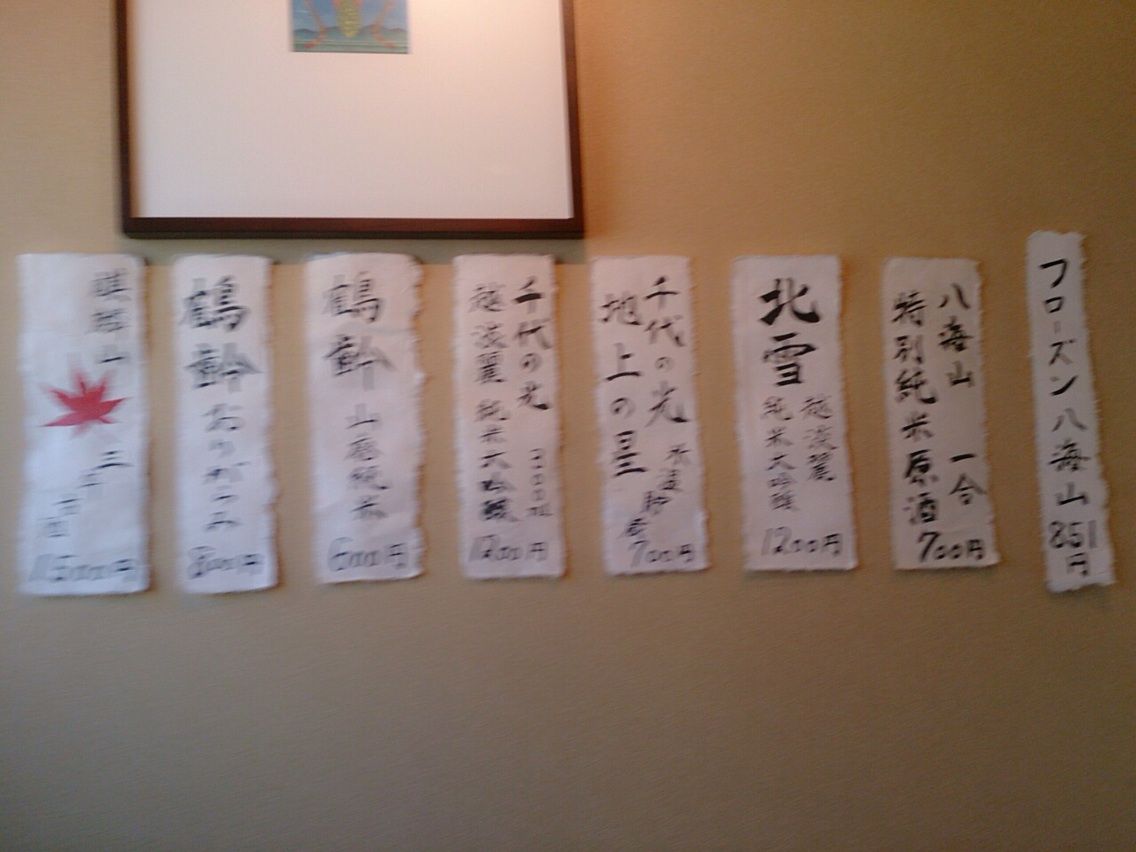 フローズン八海山 851円
八海山 一合
特別純米原酒
700円
北雪
越淡麗
純米大吟醸
1200円
千代の光
地上の星
700円
千代の光 300ml
越淡麗 純米大吟醸
1200円
鶴齢 山廃純米
600円
鶴齢 おりがらみ
800円
麒麟山
円